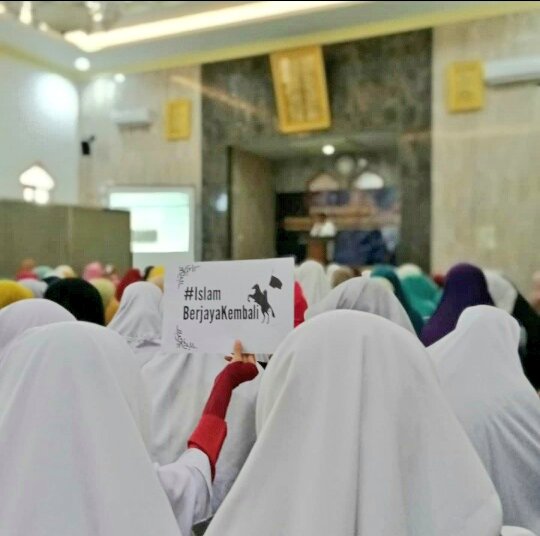 #Islam
BerjayaKembali